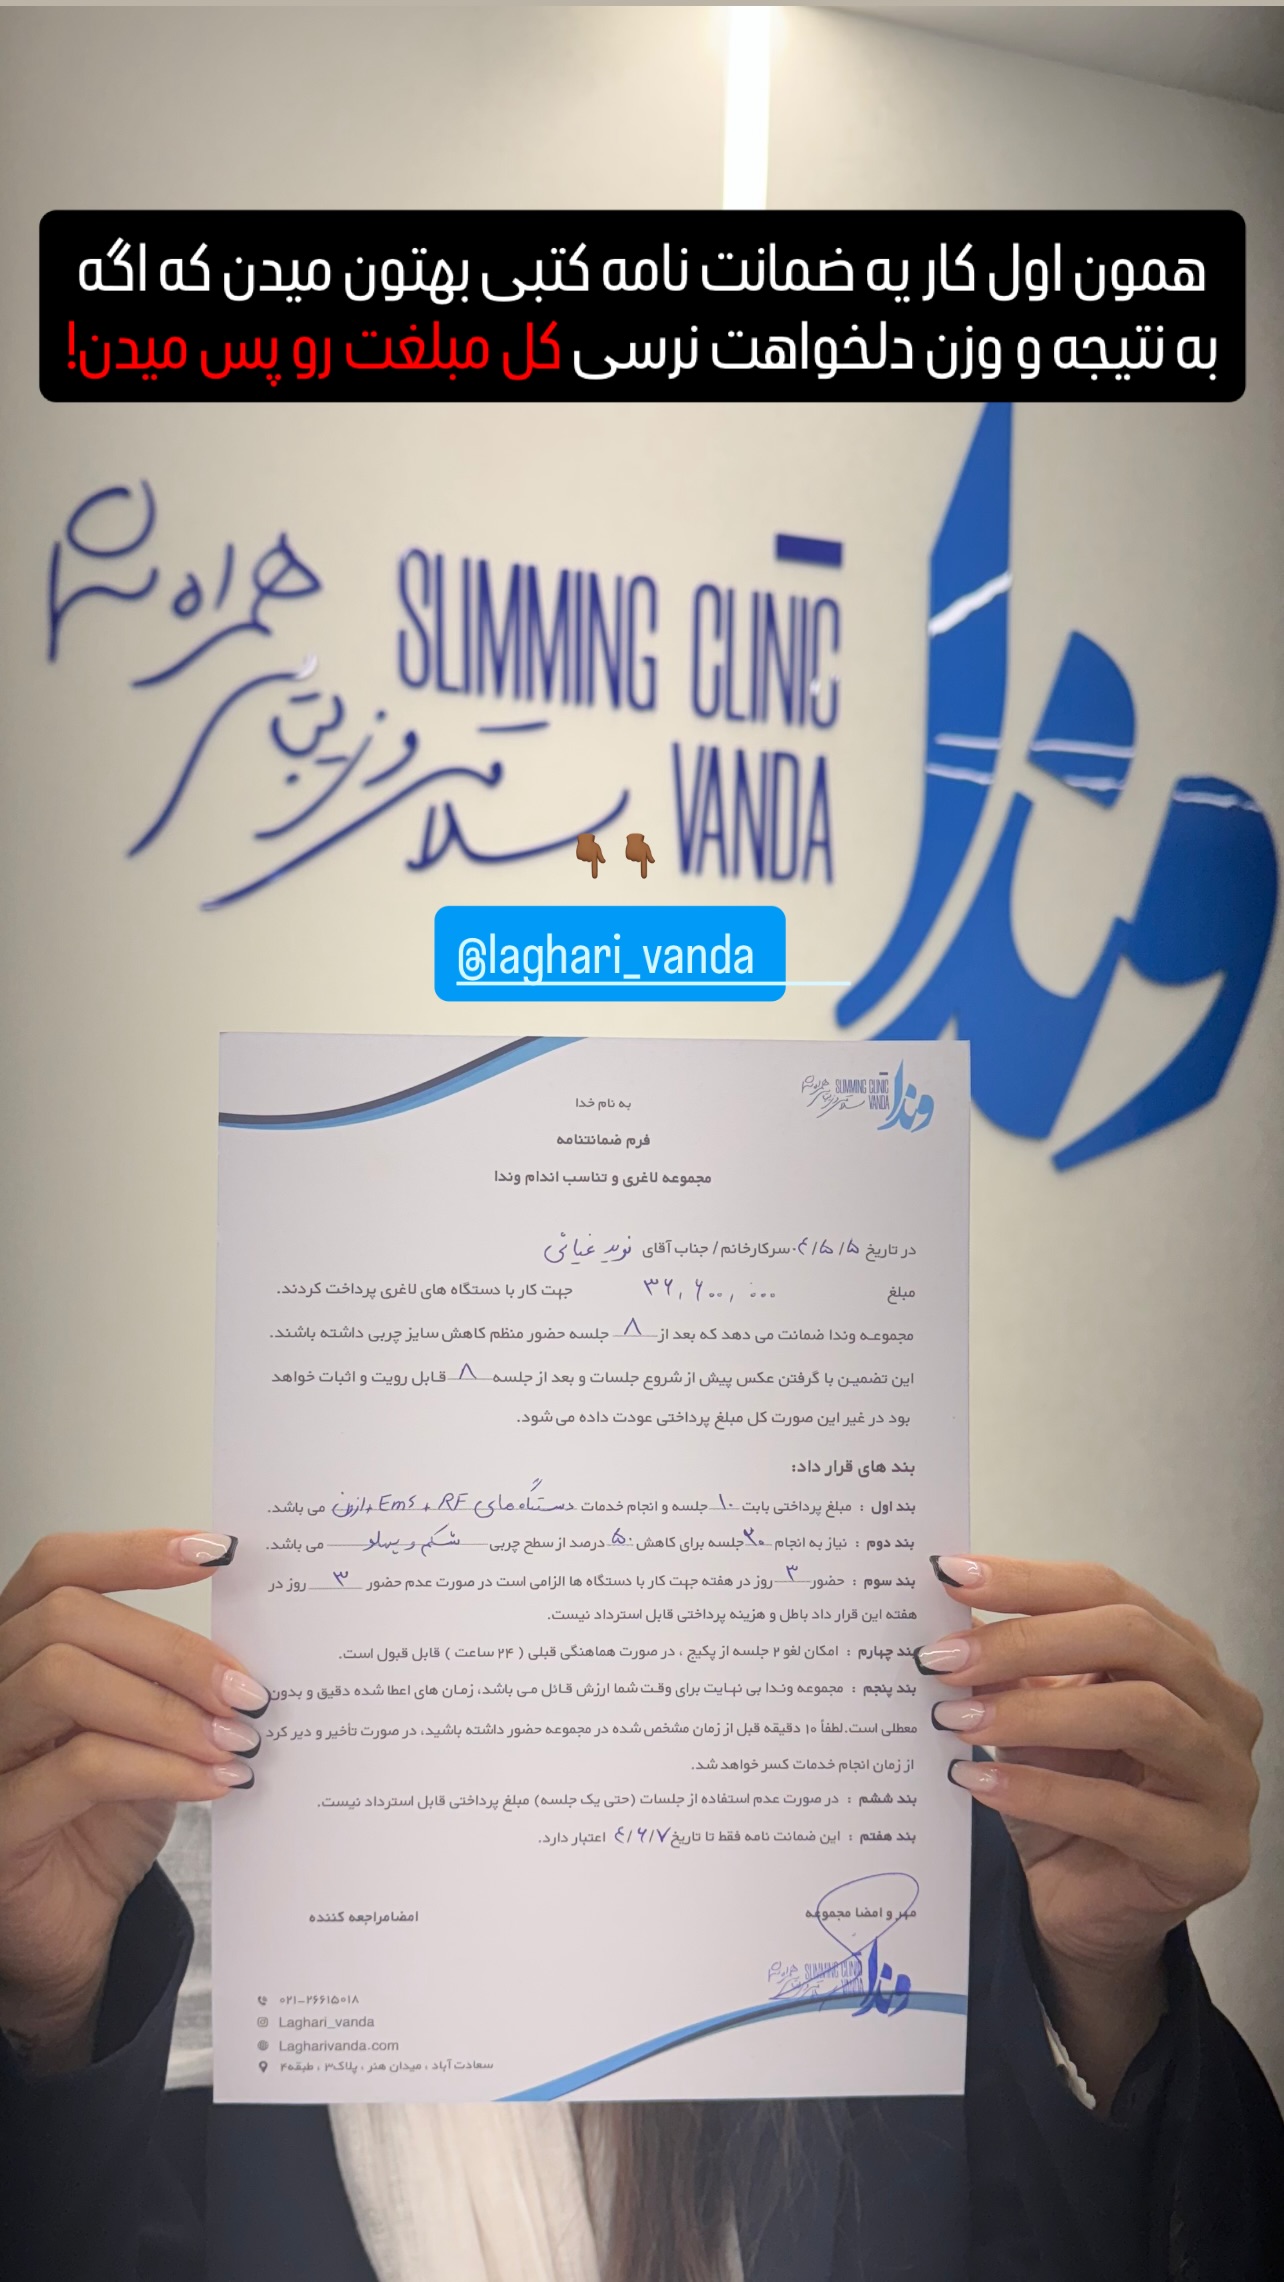 همون اول کار یه ضمانت نامه کتبی بهتون میدن که اگه
به نتیجه و وزن دلخواهت نرسی کل مبلغت رو پس میدن!
SLIMMING CLINIC
VANDA
وندا
سلامتی و زیبایی همراه شما
👇🏾👇🏾
@laghari_vanda
وندا SLIMMING CLINIC VANDA
به نام خدا
فرم ضمانتنامه
مجموعه لاغری و تناسب اندام وندا
در تاریخ ۰۴/۵/۵ سرکارخانم / جناب آقای نوید غیاثی
مبلغ ۳۶,۶۰۰,۰۰۰ جهت کار با دستگاه های لاغری پرداخت کردند.
مجموعه وندا ضمانت می دهد که بعد از ۸ جلسه حضور منظم کاهش سایز چربی داشته باشند.
این تضمین با گرفتن عکس پیش از شروع جلسات و بعد از جلسه ۸ قابل رویت و اثبات خواهد
بود در غیر این صورت کل مبلغ پرداختی عودت داده می شود.
بند های قرار داد:
بند اول : مبلغ پرداختی بابت ۱۰ جلسه و انجام خدمات دستگاه های RF + Ems + ازون می باشد.
بند دوم : نیاز به انجام ۲۰ جلسه برای کاهش ۵۰ درصد از سطح چربی شکم و پهلو می باشد.
بند سوم : حضور ۳ روز در هفته جهت کار با دستگاه ها الزامی است در صورت عدم حضور ۳ روز در
هفته این قرار داد باطل و هزینه پرداختی قابل استرداد نیست.
بند چهارم : امکان لغو ۲ جلسه از پکیج ، در صورت هماهنگی قبلی ( ۲۴ ساعت ) قابل قبول است.
بند پنجم : مجموعه وندا بی نهایت برای وقت شما ارزش قائل می باشد، زمان های اعطا شده دقیق و بدون
معطلی است.لطفاً ۱۰ دقیقه قبل از زمان مشخص شده در مجموعه حضور داشته باشید، در صورت تأخیر و دیر کرد
از زمان انجام خدمات کسر خواهد شد.
بند ششم : در صورت عدم استفاده از جلسات (حتی یک جلسه) مبلغ پرداختی قابل استرداد نیست.
بند هفتم : این ضمانت نامه فقط تا تاریخ ۴/۶/۷ اعتبار دارد.
مهر و امضا مجموعه
امضامراجعه کننده
وندا SLIMMING CLINIC VANDA
۰۲۱-۲۶۶۱۵۰۱۸
Laghari_vanda
Lagharivanda.com
سعادت آباد ، میدان هنر ، پلاک۳ ، طبقه۴